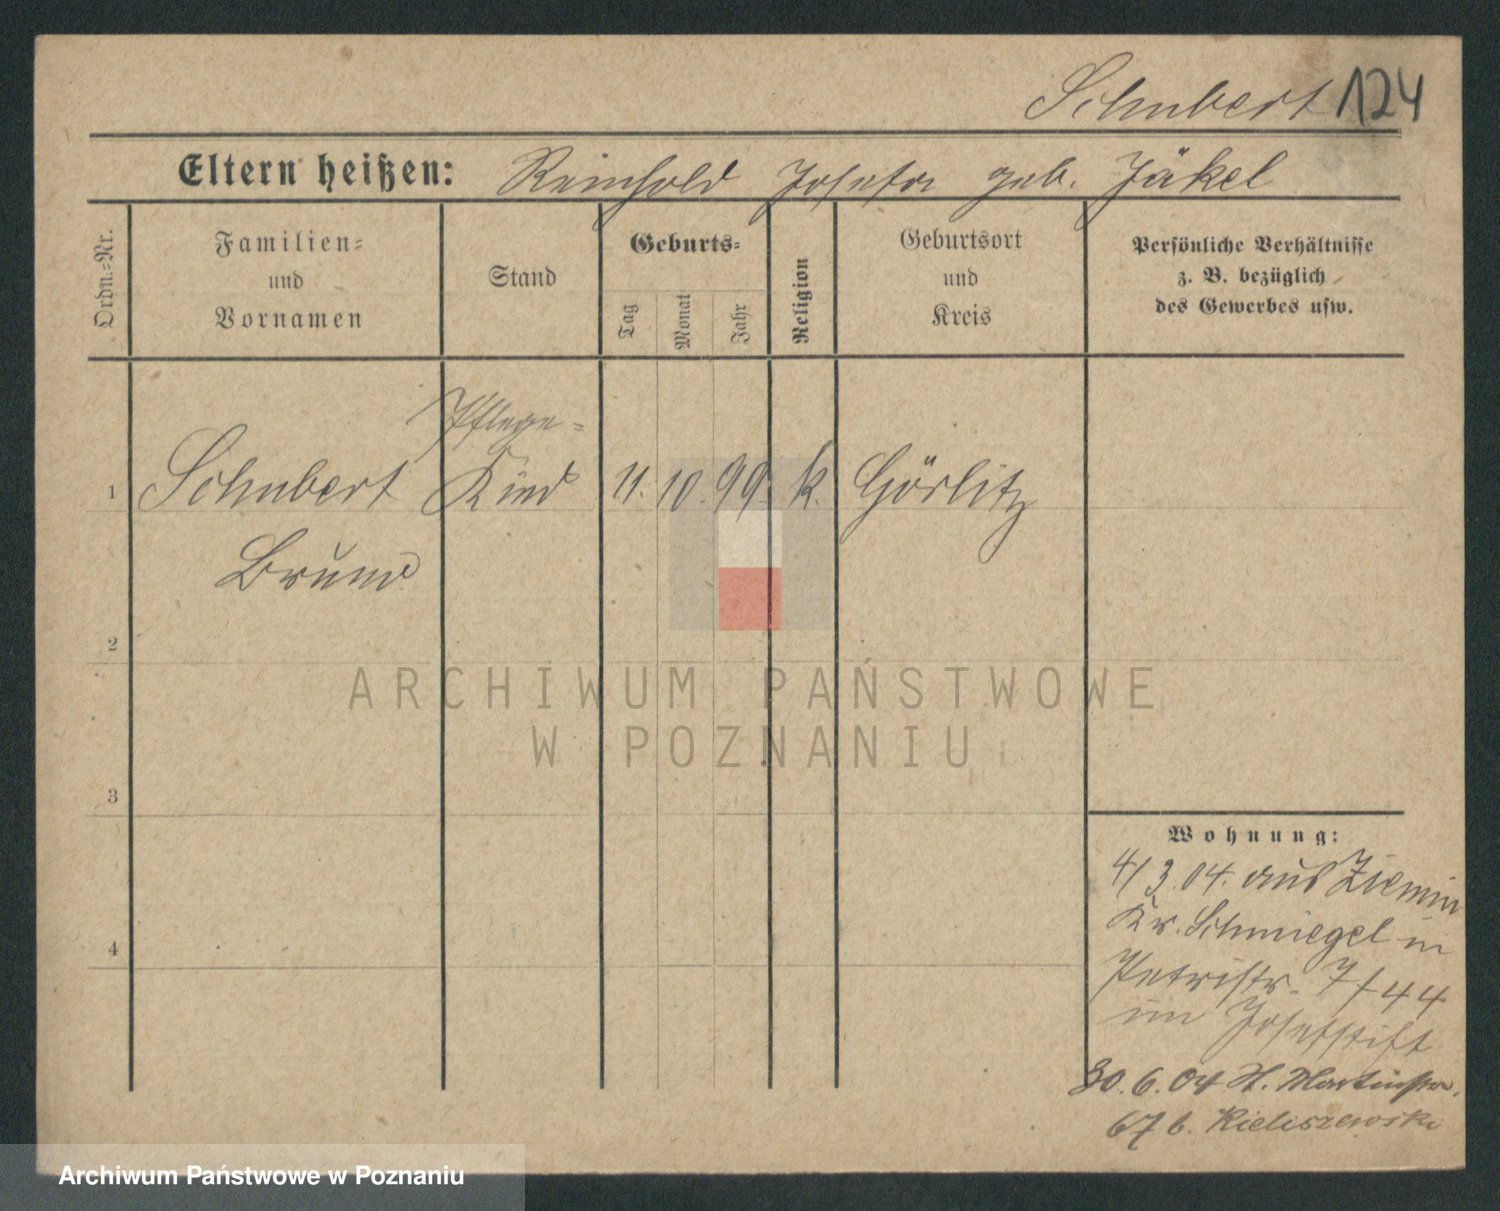 Schubert 124
Eltern heißen: Reinhold Josefa geb. Jäkel
Ordn.=Nr.
Familien=
und
Vornamen
Stand
Geburts=
Tag
Monat
Jahr
Religion
Geburtsort
und
Kreis
Persönliche Verhältnisse
z. B. bezüglich
des Gewerbes usw.
Pflege=
1 Schubert Kind 11. 10. 99. k. Görlitz
Bruno
2
ARCHIWUM PAŃSTWOWE
W POZNANIU
3
4
Wohnung:
4/3.04. aus Ziemin
Kr. Schmiegel in
Petristr. 7/44
im Josefstift
30.6.04 St. Martinstr.
67 b. Kieliszewski
Archiwum Państwowe w Poznaniu